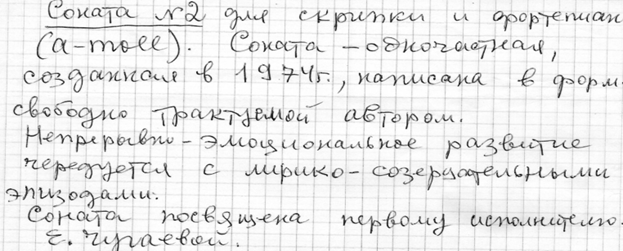 Соната №2 для скрипки и фортепиан
(a-moll). Соната – одночастная,
созданная в 1974г., написана в форм
свободно трактуемой автором.
Непрерывно-эмоциональное развитие
чередуется с лирико-созерцательными
эпизодами.
Соната посвящена первому исполнителю.
Е. Чугаевой.